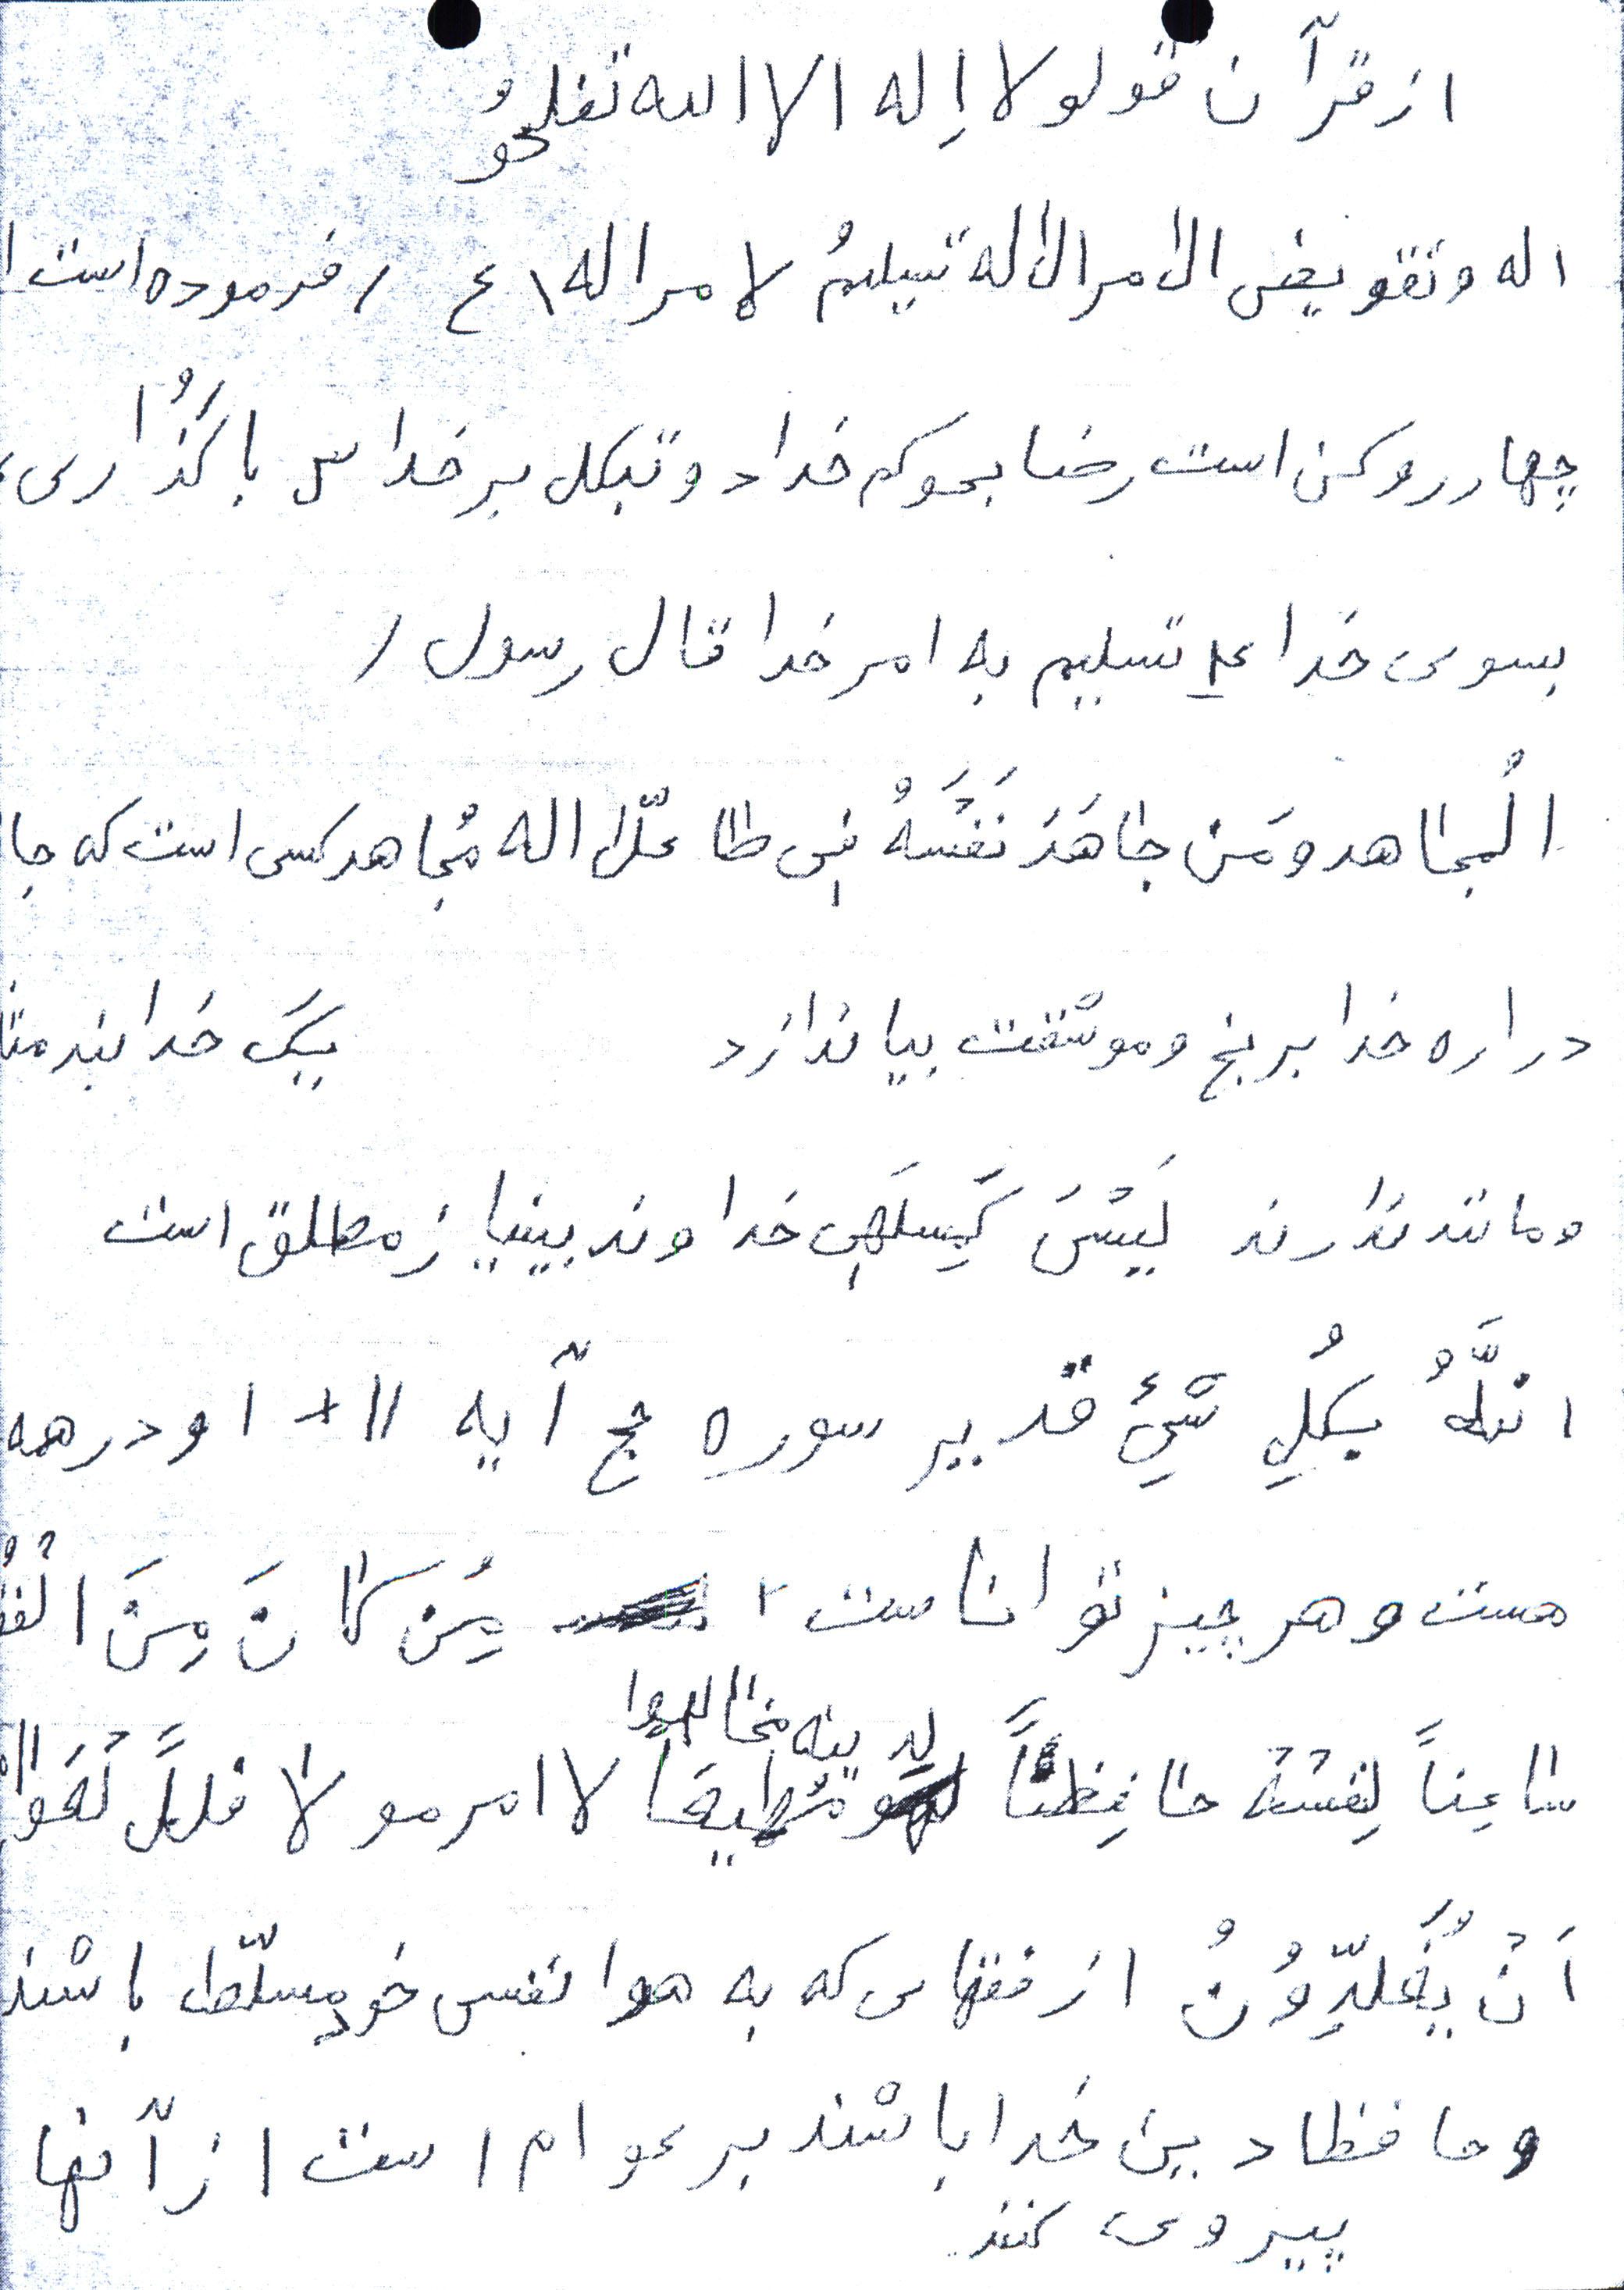 از قرآن قولو لا اِله الا الله تفلحوُ
اله وتفویض الامر الی اله تسیلمُ لامر اله ۱ع / فرموده است
چهار روکن است رضا بحوکم خداد وتبکل بر خداس باگذُاری
بسوی خدا ع۴ تسلیم به امر خدا قال رسول /
الْمجاهد ومَن جاهَدَ نَفْسَهُ فی طاعلّی اله مُجاهد کسی است که جا
در اره خدا برنج وموشقت بیاندازد یک خدایند
ومانند ندارند لَیْسَ کَمِسلَهِی خداوند بینیاز مطلق است
انلَّهُ بکُلِ شَیِءٍ قدیر سوره حج آیه ۱۱+ او در همه
هست و هر چیز توانا ست ۲ مَِن کانَ مِنَ
سا عِناً لِفسْهُ حافِظاً لدینه مخالفوا لا امر مو لا فللَّ
اَنْ یُقَلدِّوُنُ از فقهاس که به هوا نفسی خود مسلّط باشند
وحافظا دین خدا باشند بر عوام است از آنها
پیروی کنند.